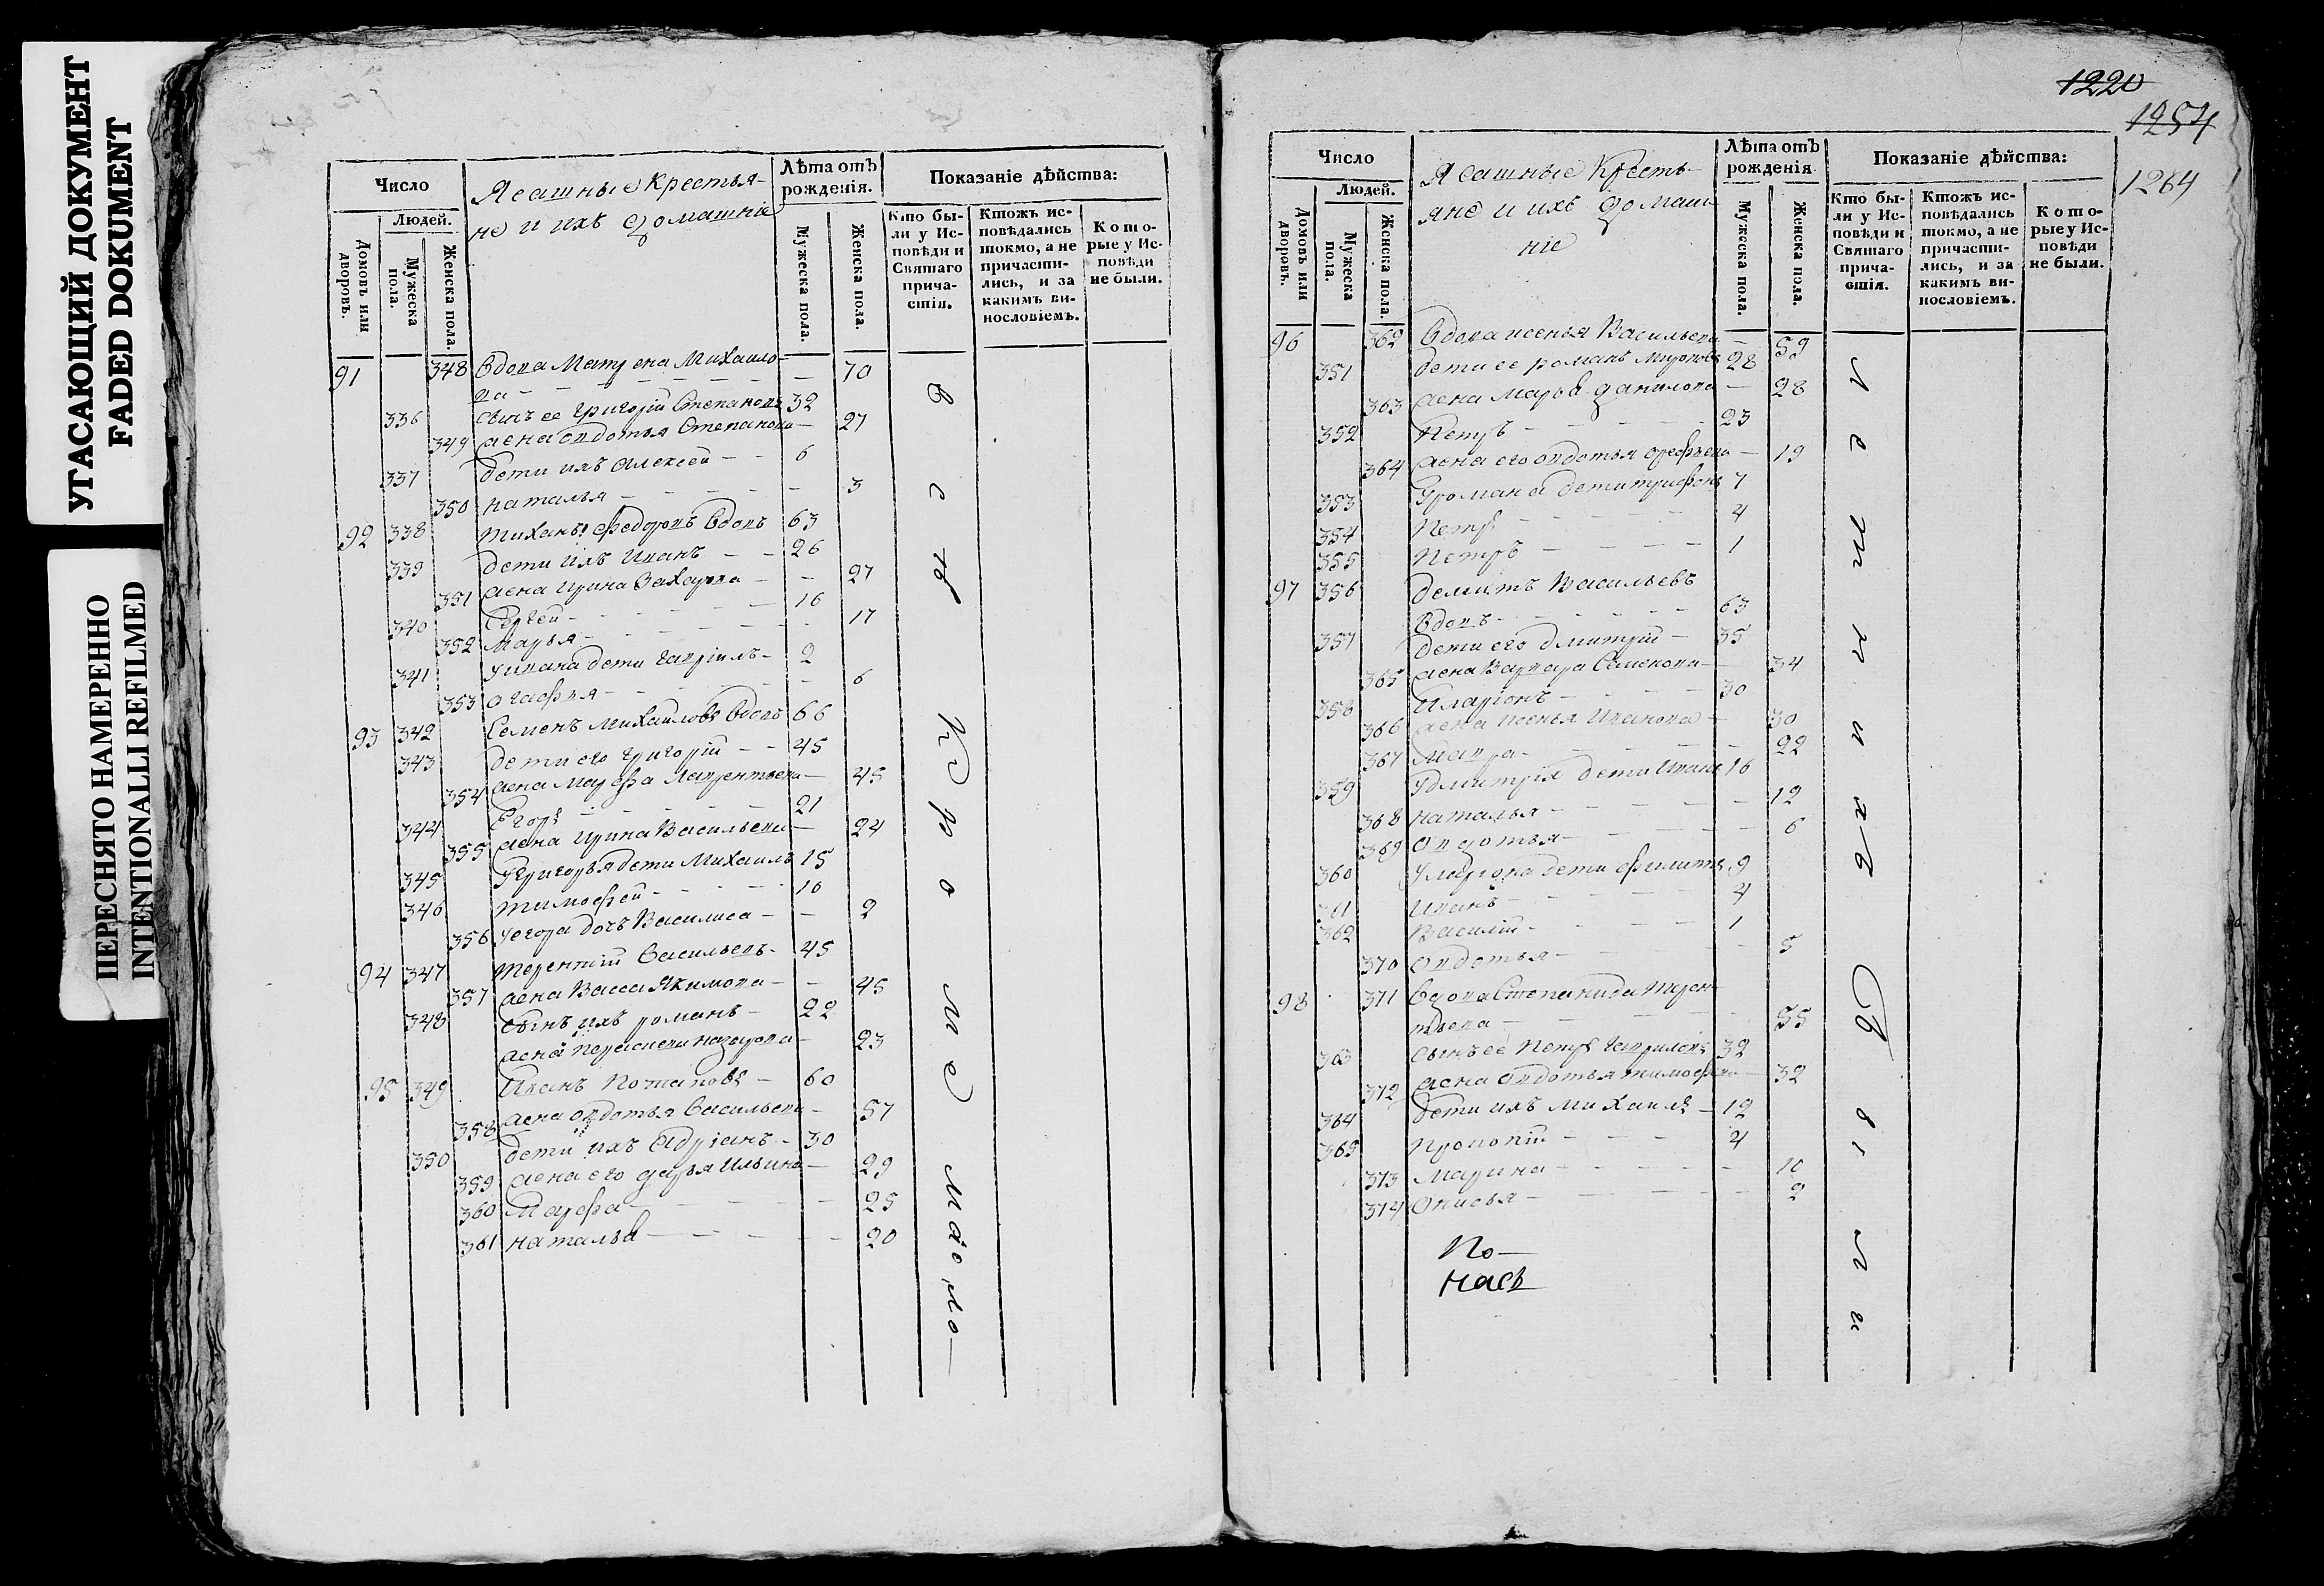 УГАСАЮЩИЙ ДОКУМЕНТ
FADED DOKUMENT
ПЕРЕСНЯТО НАМЕРЕННО
INTENTIONALLI REFILMED
Число
Людей.
Домовъ или дворовъ.
Мужеска пола.
Женска пола.
Ясашные Крестья-
не и ихъ домашніе
Лѣта отъ рожденія.
Мужеска пола.
Женска пола.
Показаніе дѣйства:
Кто бы-
ли у Ис-
повѣди и
Святаго
прича-
стія.
Ктожъ ис-
повѣдались
токмо, а не
причасти-
лись, и за
какимъ ви-
нословіемъ.
Кото-
рые у Ис-
повѣди
не были.
91 348 Вдова Матрена Михаило-
ва - 70
336 Сынъ ее Григорій Степановъ 32
349 жена Овдотья Степанова 27
337 Дети ихъ Алексей 6
350 Наталья 3
92 338 Тиханъ Федоровъ Вдовъ 63
339 Дети ихъ Иванъ 26
351 жена Ирина Захарова 27
340 Сергей 16
352 Марья 17
341 У Ивана дети Гаврілъ 2
353 Огафья 6
93 342 Семенъ Михайловъ Вдовъ 66
343 Дети его Григорій 45
354 жена Марфа Лаврентьева 45
344 Егоръ 21
355 жена Ирина Васильева 24
345 У Григорья дети Михаилъ 15
346 Тимофей 10
356 У Егора дочь Василиса 2
94 347 Терентій Васильевъ 45
357 жена Васса Якимова 45
348 Сынъ ихъ Романъ 22
жена Назарова 23
95 349 Иванъ Потаповъ 60
358 жена Овдотья Васильева 57
350 Дети ихъ Адріанъ 30
359 жена его Дарья Ильина 29
360 Марфа 25
361 Наталья 20
1220
1254
1264
Число
Людей.
Домовъ или дворовъ.
Мужеска пола.
Женска пола.
Ясашные Кресть-
яне и ихъ домаш-
ніе
Лѣта отъ рожденія
Мужеска пола.
Женска пола.
Показаніе дѣйства:
Кто бы-
ли у Ис-
повѣди и
Святаго
прича-
стія.
Ктожъ ис-
повѣдались
токмо, а не
причасти-
лись, и за
какимъ ви-
нословіемъ.
Кото-
рые у Ис-
повѣди
не были.
96 362 Вдова Ксенья Васильева 59
351 Дети ее Романъ Мироновъ 28
363 жена Марья Данилова 28
352 Петръ 23
364 жена его Овдотья Орефьева 19
353 У Романа дети Трифонъ 7
354 Петръ 4
355 Петръ 1
97 356 Демитъ Васильевъ
Вдовъ 63
357 Дети его Дмитрій 35
365 жена Варвара Семенова 34
358 Иларіонъ 30
366 жена Ксенья Иванова 30
367 Мавра 22
359 У Дмитрія дети Иванъ 16
368 Наталья 12
369 Овдотья 6
360 У Ларіона дети Филипъ 9
361 Иванъ 4
362 Василій 1
370 Овдотья 5
98 371 Вдова Степанида Терен-
тьева 55
363 Сынъ ее Петръ Гавриловъ 32
372 жена Овдотья Тимофеева 32
364 Дети ихъ Михаилъ 12
365 Прокопій 4
373 Марина 10
374 Онисья 2
По-
насъ